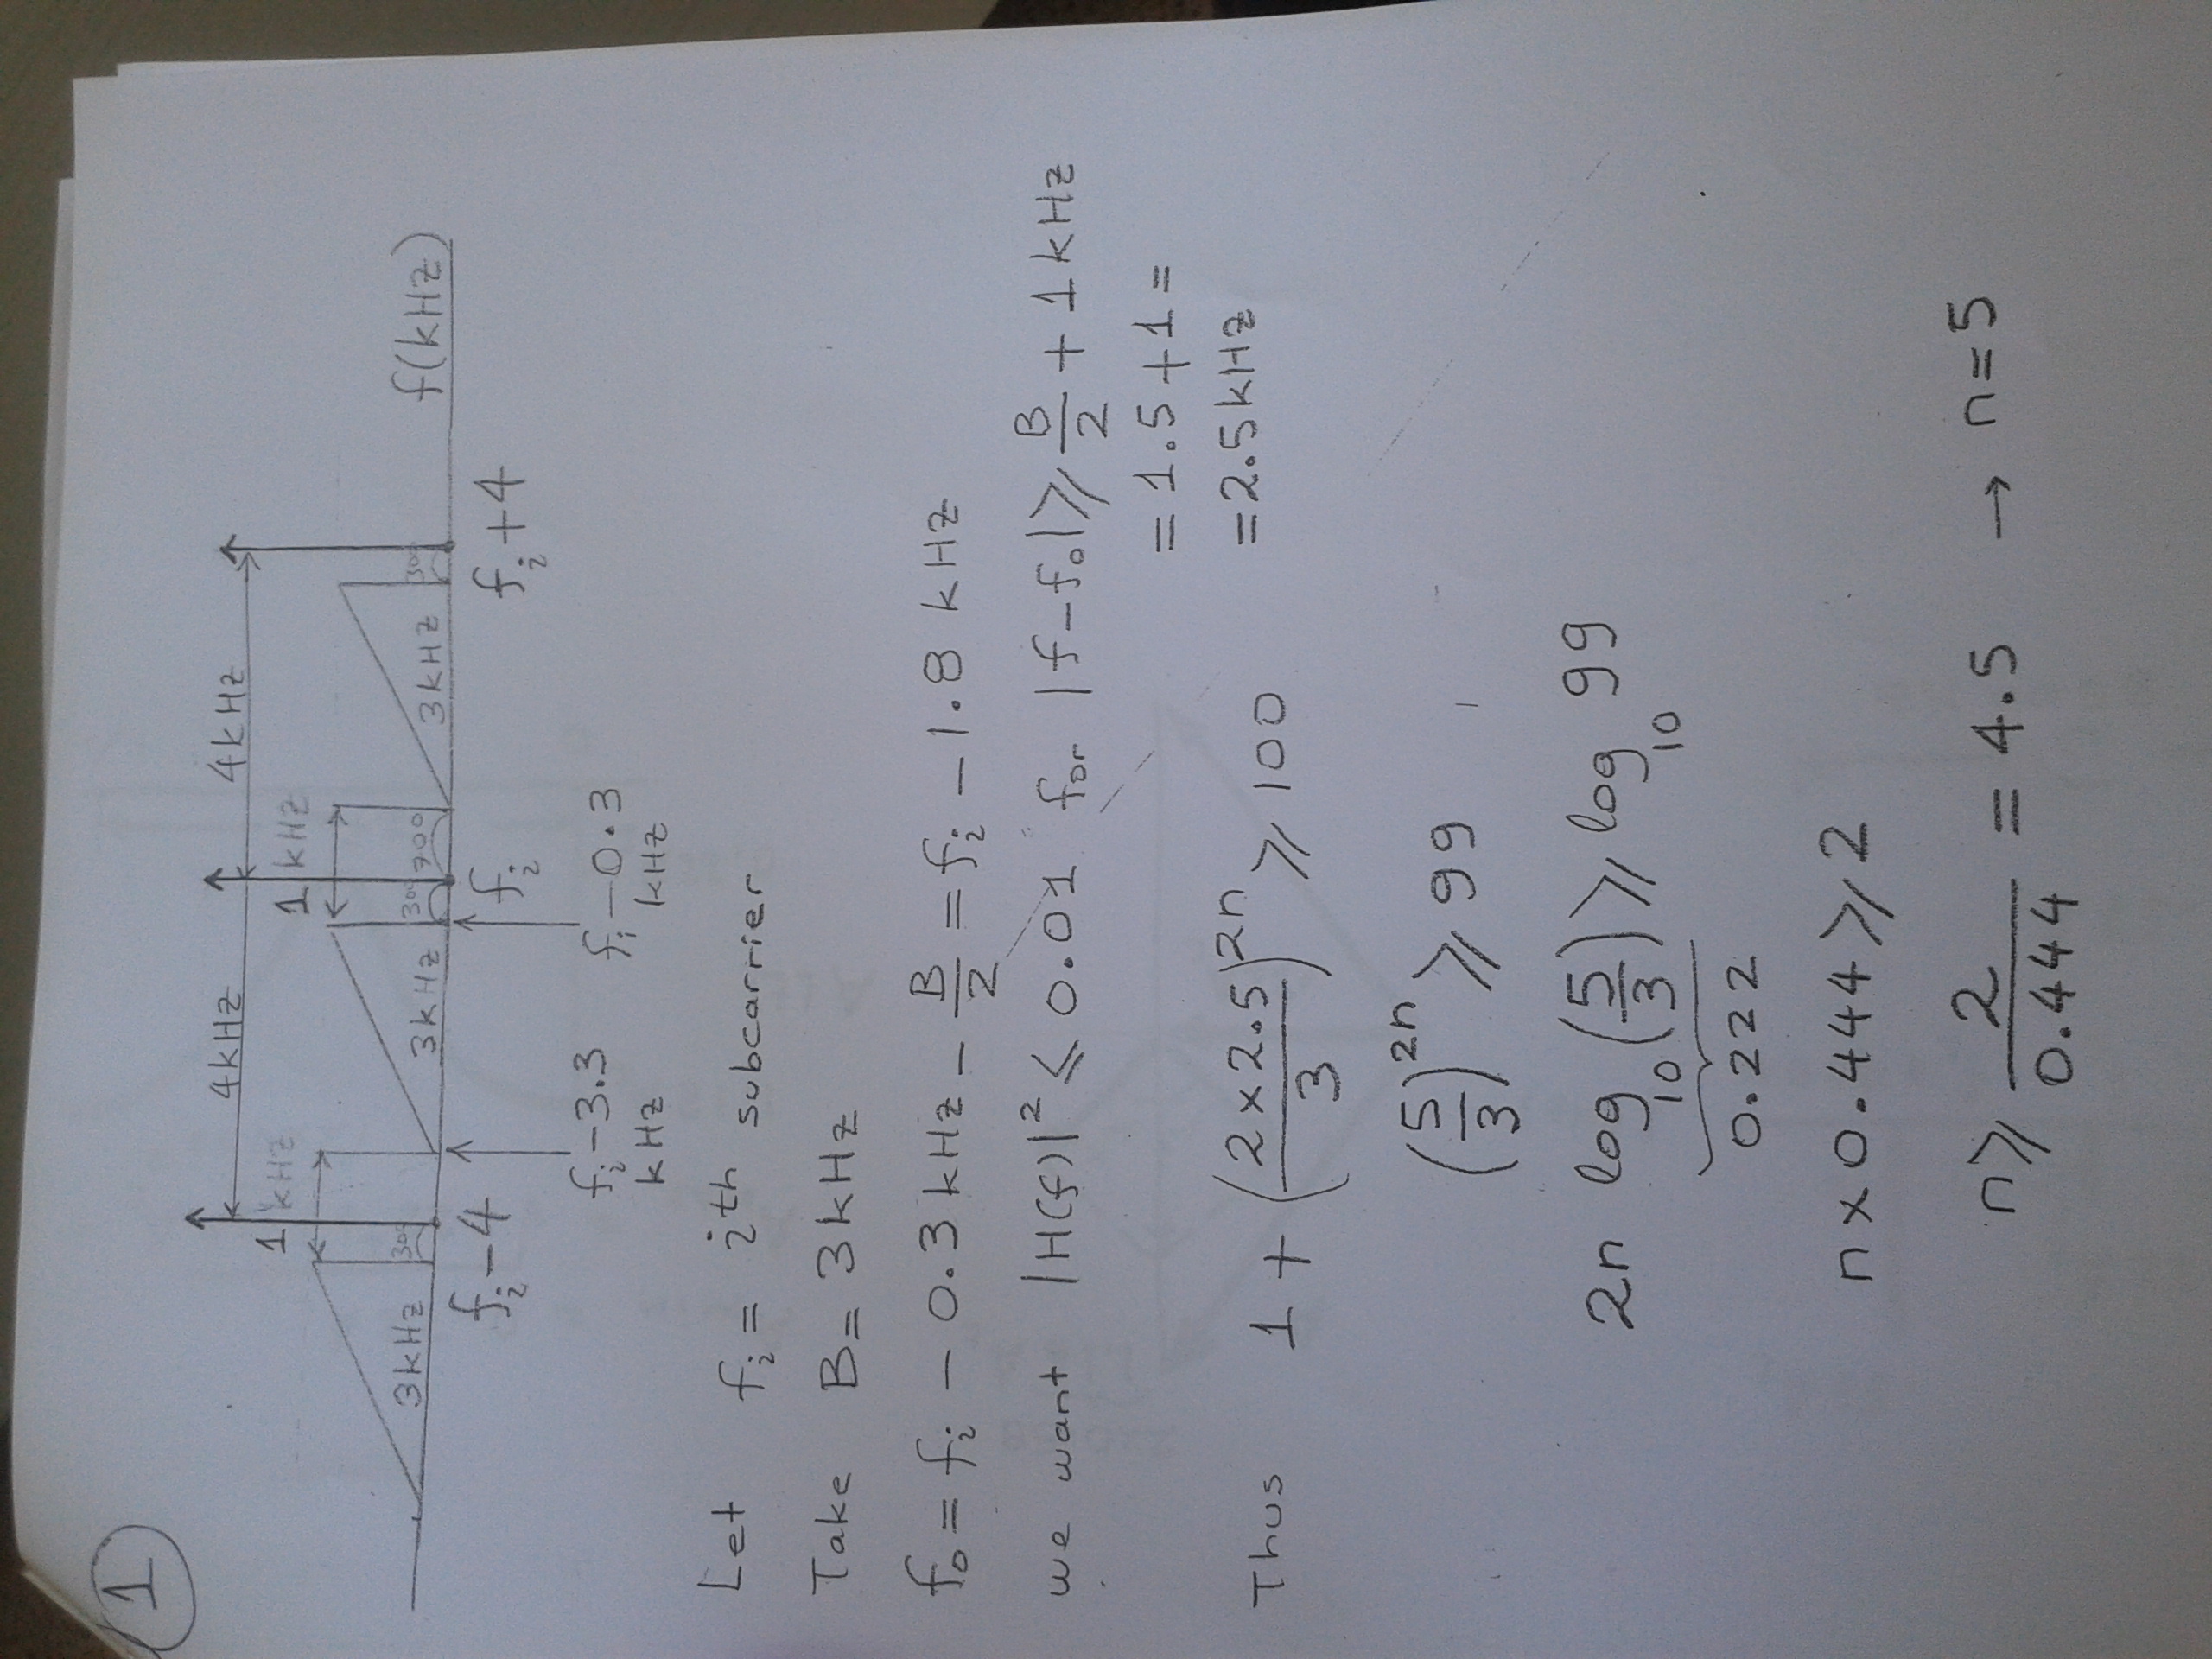 1
4kHz 4kHz
1 kHz 1 kHz
3kHz 300 3kHz 300 700 3kHz 300 f(kHz)
fᵢ-4 fᵢ fᵢ+4
fᵢ-3.3 kHz fᵢ-0.3 kHz
Let fᵢ = ith subcarrier
Take B = 3kHz
f₀ = fᵢ - 0.3 kHz - B/2 = fᵢ - 1.8 kHz
we want |H(f)|² ≤ 0.01 for |f-f₀| ≥ B/2 + 1kHz
= 1.5 + 1 =
= 2.5kHz
Thus 1 + (2×2.5/3)²ⁿ ≥ 100
(5/3)²ⁿ ≥ 99
2n log₁₀(5/3) ≥ log₁₀ 99
0.222
n × 0.444 ≥ 2
n ≥ 2/0.444 = 4.5 → n=5